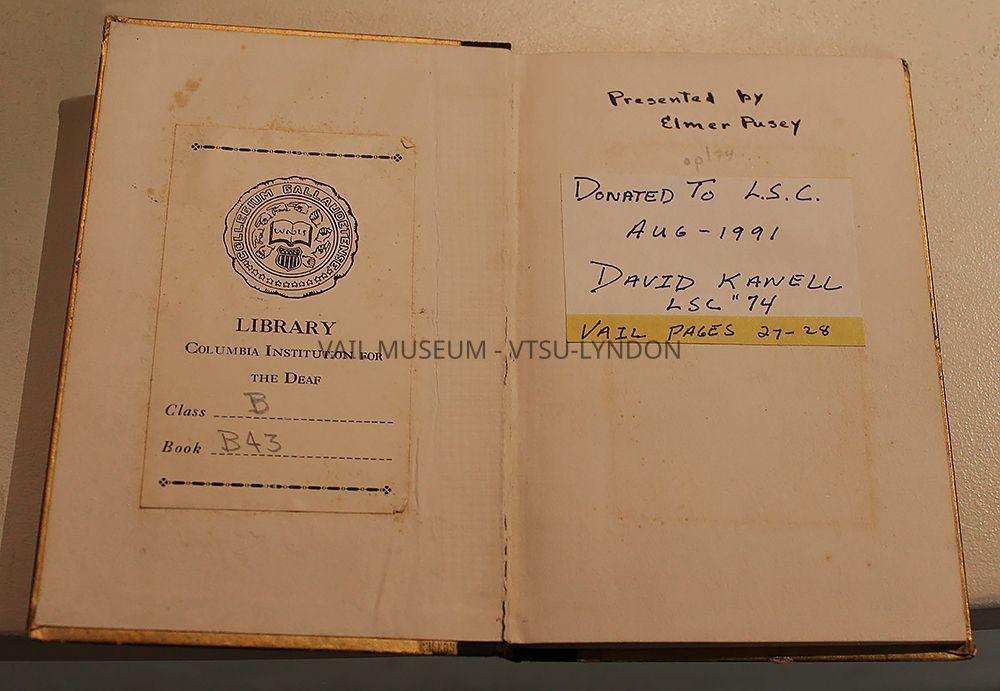 COLLEGIUM GALLAUDETENSE
LIBRARY
COLUMBIA INSTITUTION FOR
THE DEAF
Class B
Book B43
Presented by
Elmer Pusey
DONATED TO L.S.C.
AUG-1991
DAVID KANELL
LSC "74
VAIL PAGES 27-28
VAIL MUSEUM - VTSU-LYNDON